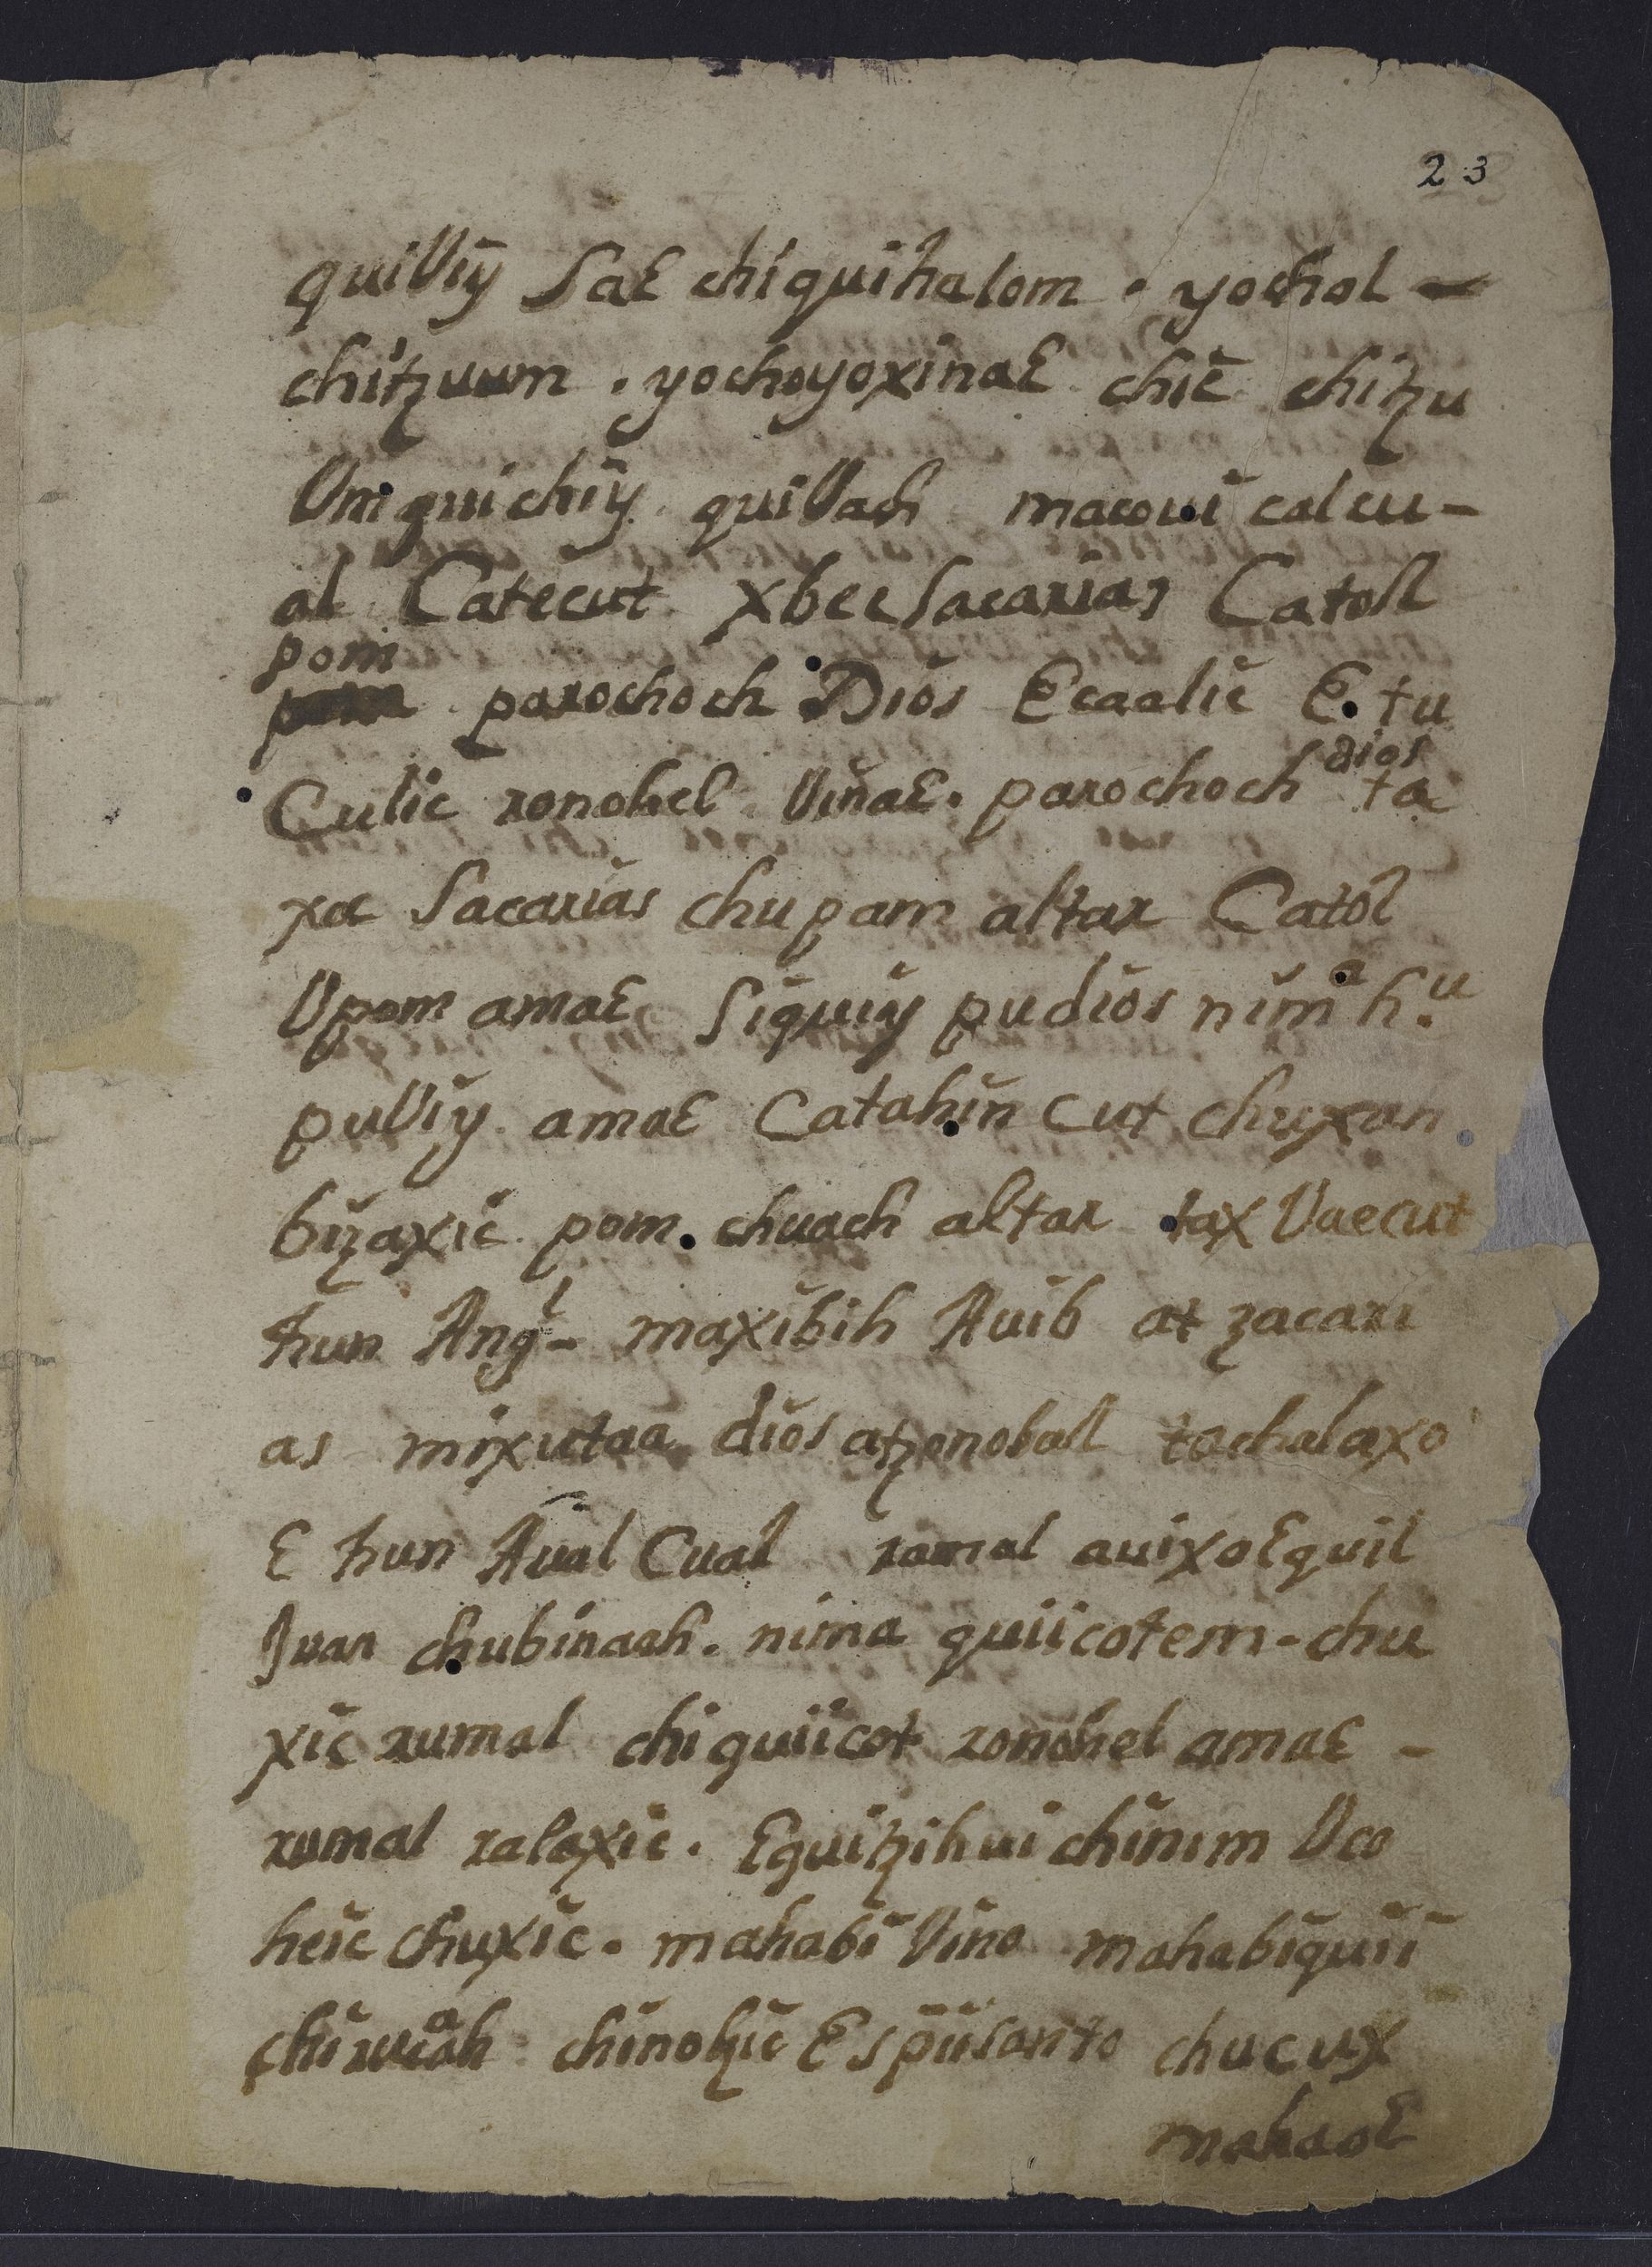 23
quiVij SaƐ chiquihalom . yochol -
chitzuum . yochoyoxinaƐ chic chitzu
Um quichiy quiVach macoui calcu-
al Catecut xbec Sacarias Catoll
pom
parochoch Dios Ecaalic E. tu
dios
Culic ronohel VinaƐ. parochoch ta
xa Sacarias chupam altar Catol
Vpom amaƐ Siquiy pudios nimª h.u
puViy amaƐ Catahin cut chuxan
bizaxic pom. chuach altar tax Vaecut
hun Angl- maxibih Auib at zacari
as mixutaa dios atzonoball tachalaxo
Ɛ hun Aual Cual rumal auixoƐquil
Juan chubinaah. nima quiicotem - chu
xic rumal chi quiicot ronohel amaƐ -
rumal ralaxic. Ɛquitzihui chinim Vco
heic chuxic. mahabi Vino mahabiquii
chirucah chinohic Espiisanto chucux
mahaoƐ